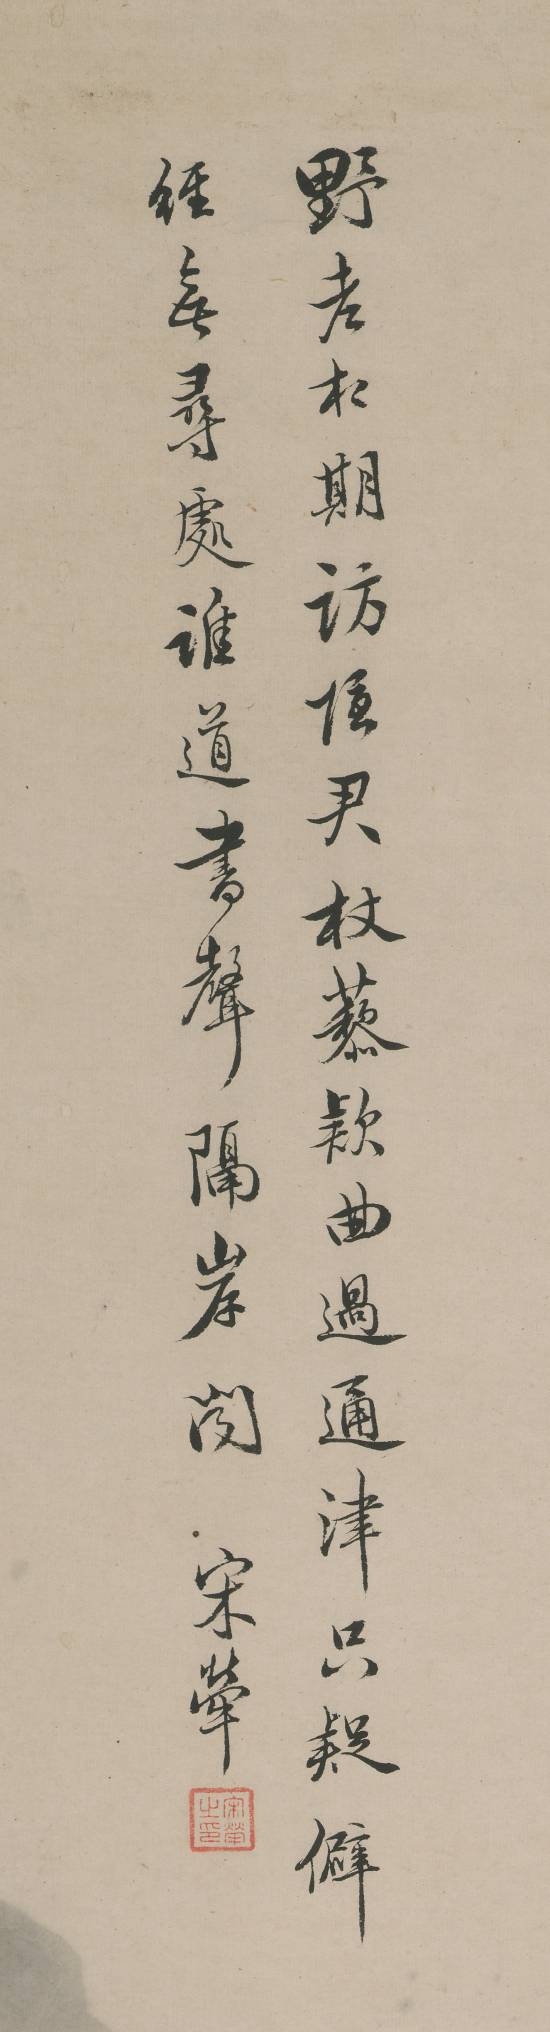 野老相期訪隱君杖藜款曲過通津只疑僻
徑無尋處誰道書聲隔岸聞
宋犖
宋犖之印